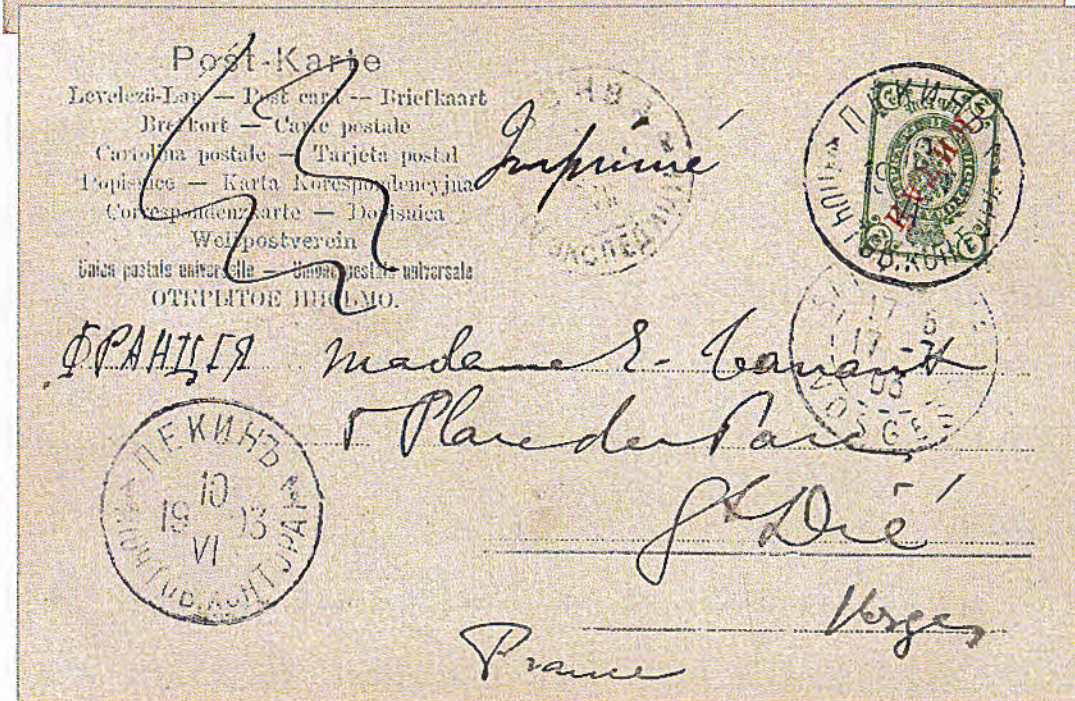 Post-Karte
Levelező-Lap — Post card — Briefkaart
Brefkort — Carte postale
Cartolina postale — Tarjeta postal
Dopisnice — Karta Korespondencyjna
Correspondenzkarte — Dopisnica
Weltpostverein
Union postale universelle — Unione postale universale
ОТКРЫТОЕ ПИСЬМО.
Imprimé
КИТАЙ
ПЕКИНЪ
ФРАНЦІЯ madame E.
5 Place du Parc
St Dié
Vosges
France
17 6
03
VOSGES
ПЕКИНЪ
10
19 03
VI